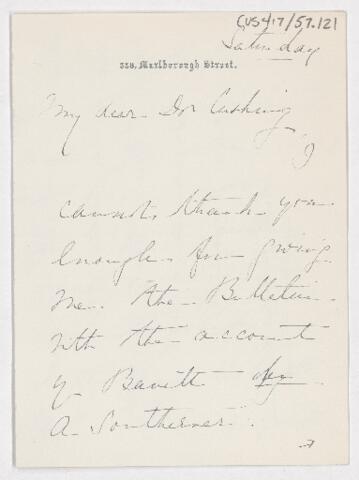 CUS417/57.121
Saturday
338, Marlborough Street.
My dear Dr Cushing
I
cannot thank you
Enough for giving
me the Bulletin
with the account
of by
A Southerner.